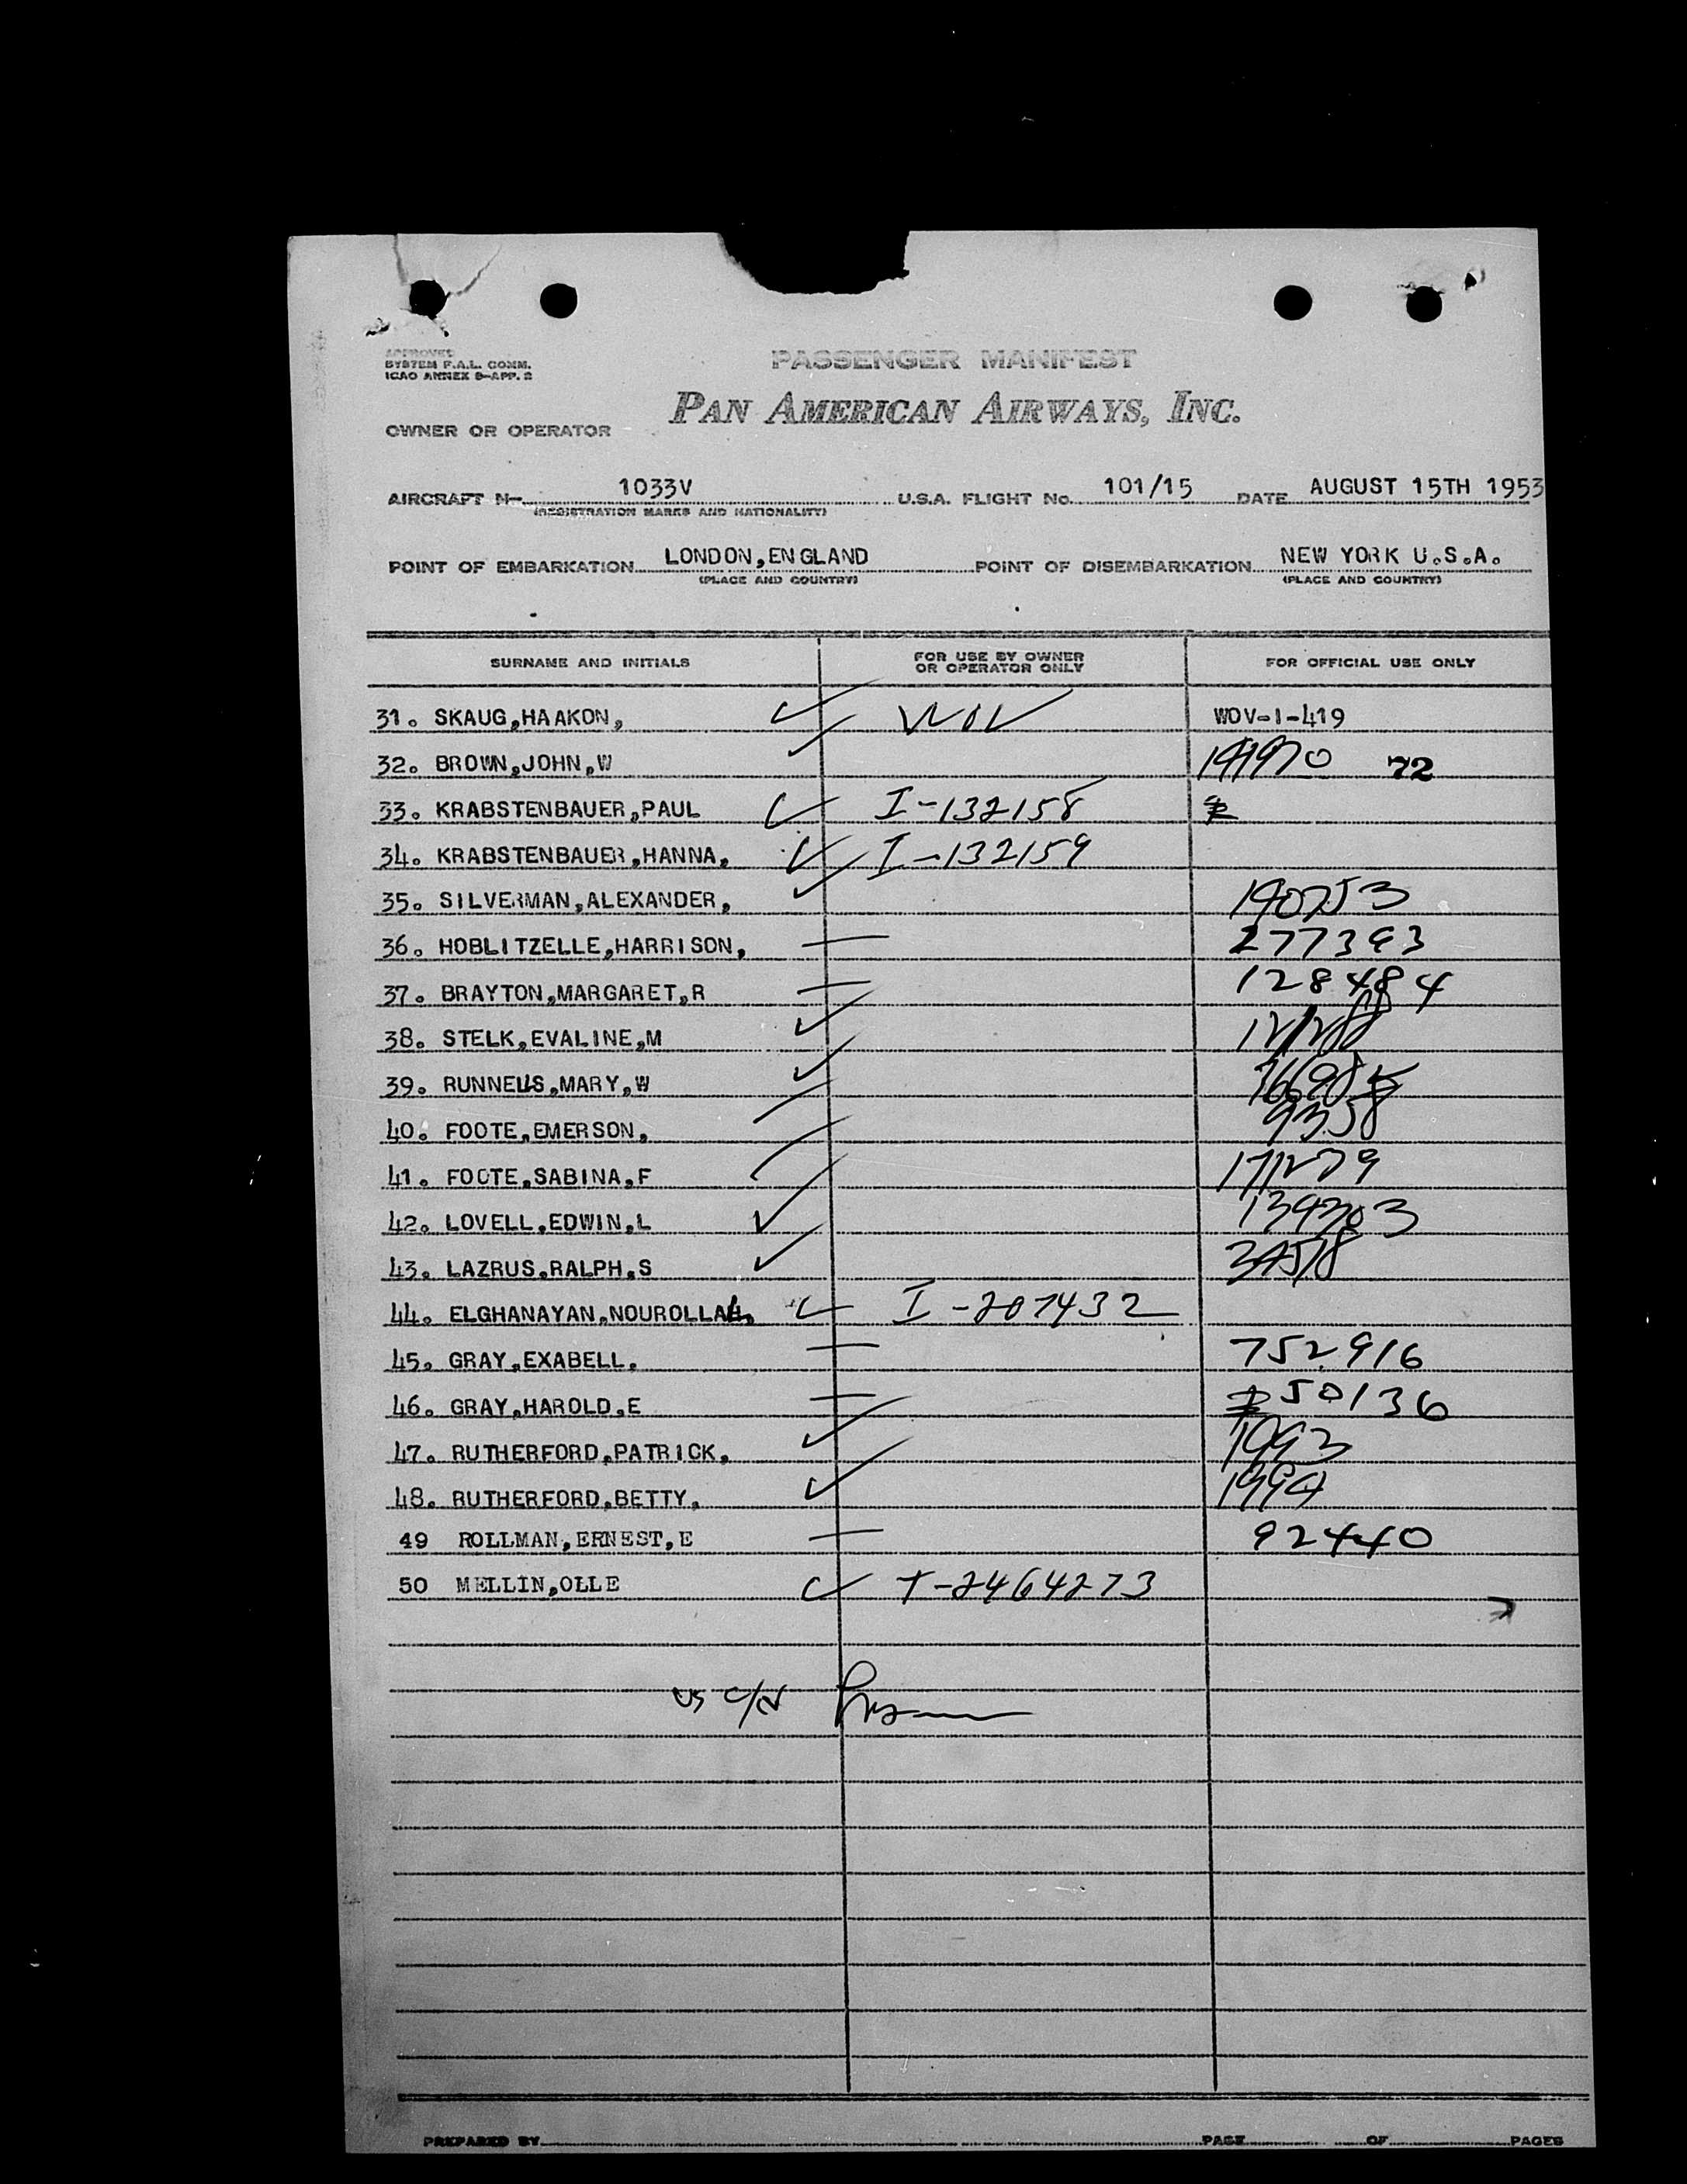 APPROVED
SYSTEM F.A.L. COMM.
ICAO ANNEX 9-APP. 2
PASSENGER MANIFEST
PAN AMERICAN AIRWAYS, INC.
OWNER OR OPERATOR
AIRCRAFT N- 1033V U.S.A. FLIGHT No. 101/15 DATE AUGUST 15TH 1953
(REGISTRATION MARKS AND NATIONALITY)
POINT OF EMBARKATION LONDON,ENGLAND POINT OF DISEMBARKATION NEW YORK U.S.A.
(PLACE AND COUNTRY) (PLACE AND COUNTRY)
SURNAME AND INITIALS FOR USE BY OWNER OR OPERATOR ONLY FOR OFFICIAL USE ONLY
31. SKAUG,HAAKON, WOV WOV-1-419
32. BROWN,JOHN,W 72
33. KRABSTENBAUER,PAUL I-132158
34. KRABSTENBAUER,HANNA, I-132159
35. SILVERMAN,ALEXANDER, 190753
36. HOBLITZELLE,HARRISON, 277393
37. BRAYTON,MARGARET,R 128484
38. STELK,EVALINE,M
39. RUNNELLS,MARY,W
40. FOOTE,EMERSON, 9358
41. FOOTE,SABINA,F 171279
42. LOVELL,EDWIN,L 139303
43. LAZRUS,RALPH,S 34518
44. ELGHANAYAN,NOUROLLAH, I-207432
45. GRAY,EXABELL. 752916
46. GRAY,HAROLD,E 50136
47. RUTHERFORD,PATRICK, 1993
48. RUTHERFORD,BETTY, 1994
49 ROLLMAN,ERNEST,E 92440
50 MELLIN,OLLE T-2464273
US C/N
PREPARED BY PAGE OF PAGES